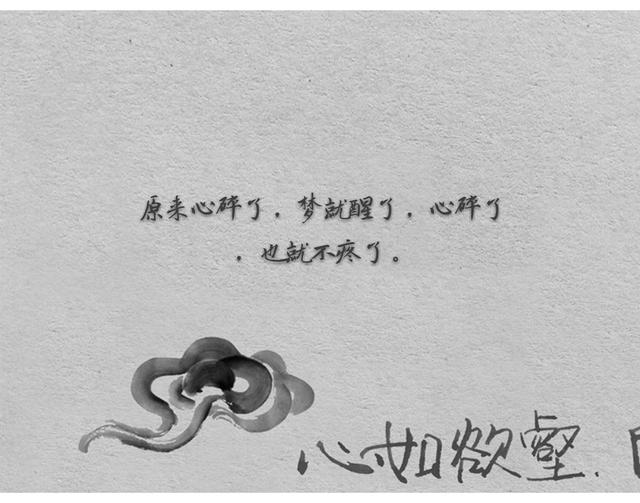 原来心碎了，梦就醒了，心碎了
，也就不疼了。
心如欲壑.